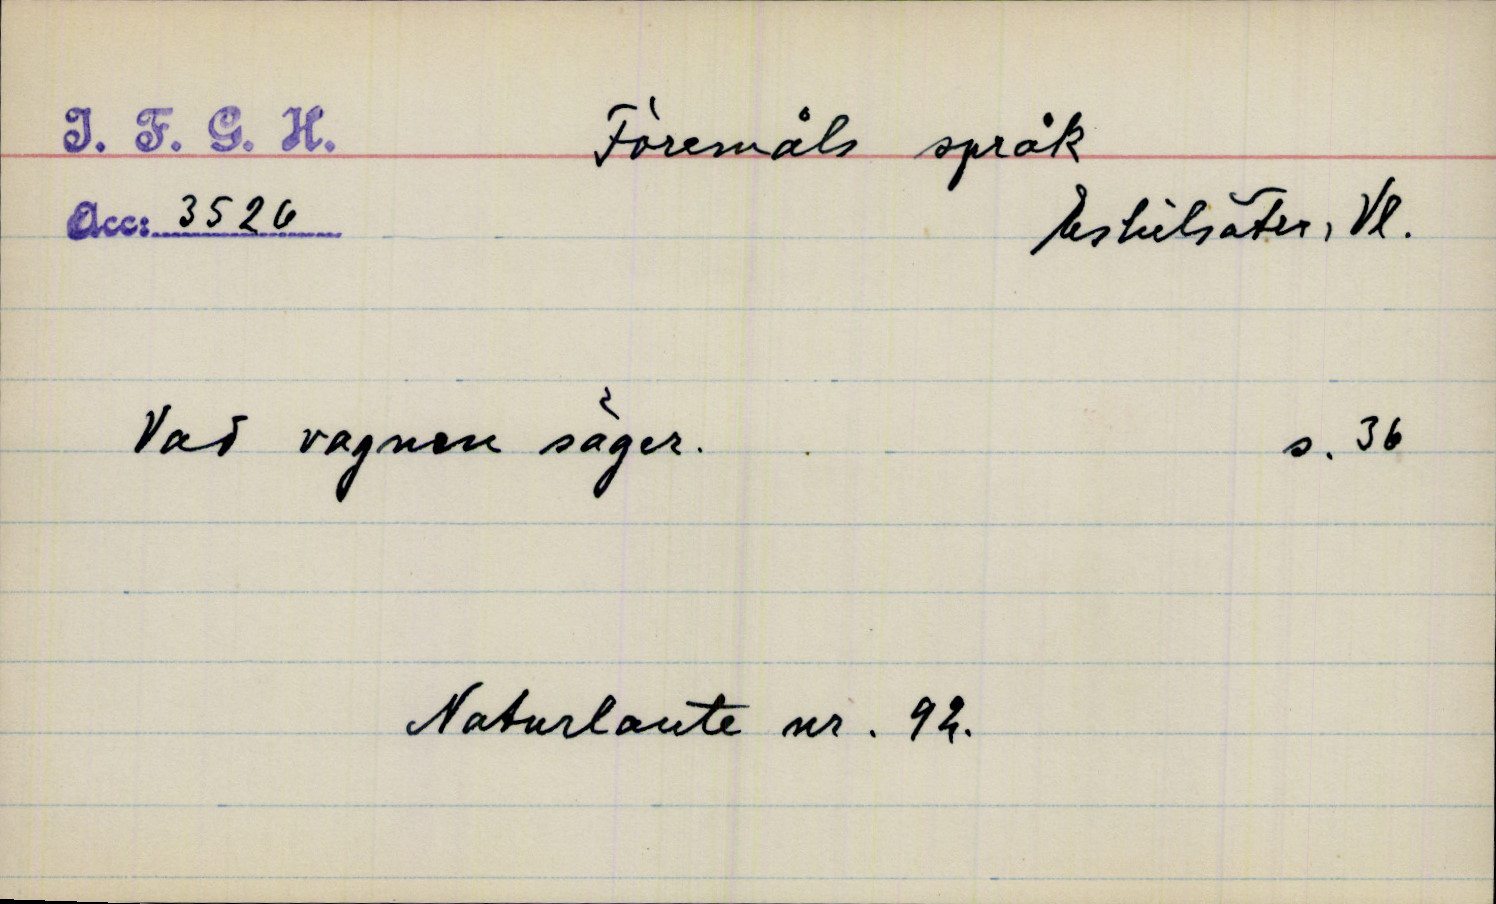 I. F. G. H.
Föremåls språk
Acc: 3526
Eskilsäter, Vl.
Vad vagnen säger. s. 36
Naturlaute nr. 92.